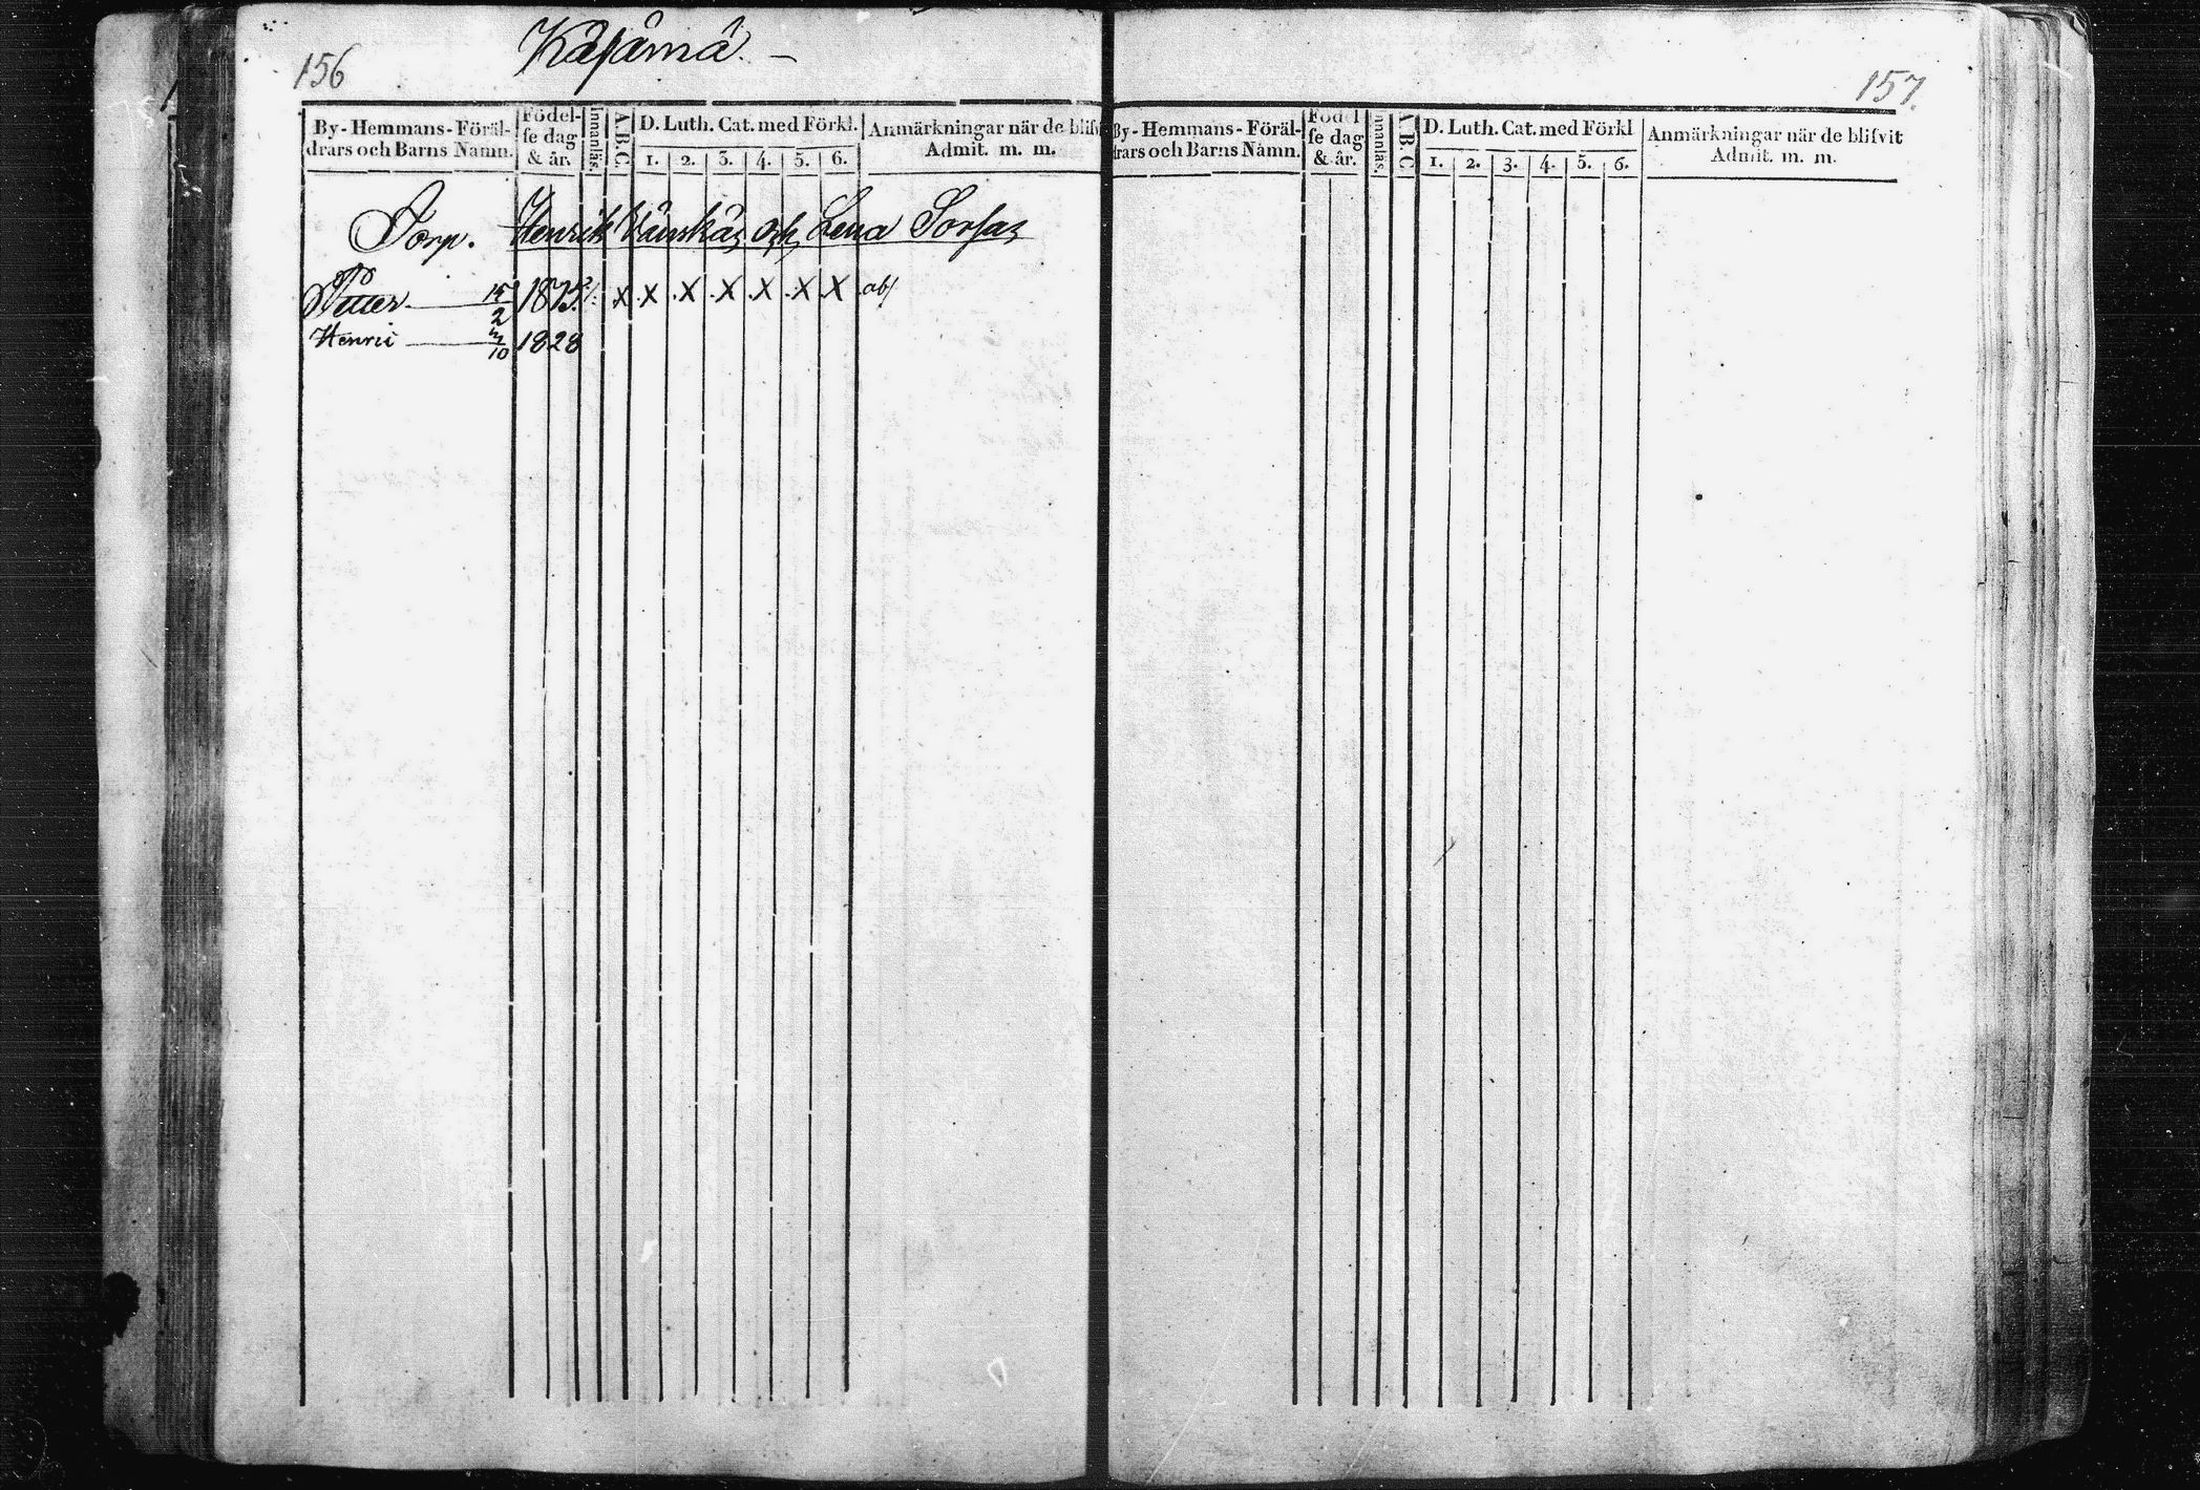 156
Käsämä. –
By-Hemmans-Föräl-
drars och Barns Namn.
Födel-
se dag
& år.
Innanläs.
A.B.C.
D. Luth. Cat. med Förkl.
1. 2. 3. 4. 5. 6.
Anmärkningar när de blifv
Admit. m. m.
Torp. Henrik och Lena
Petter 15/2 1815 X X X X X X X
Henric 1828
157.
By-Hemmans-Föräl-
drars och Barns Namn.
Födel
se dag
& år.
nnanläs.
A.B.C
D. Luth. Cat. med Förkl
1. 2. 3. 4. 5. 6.
Anmärkningar när de blifvit
Admit. m. m.